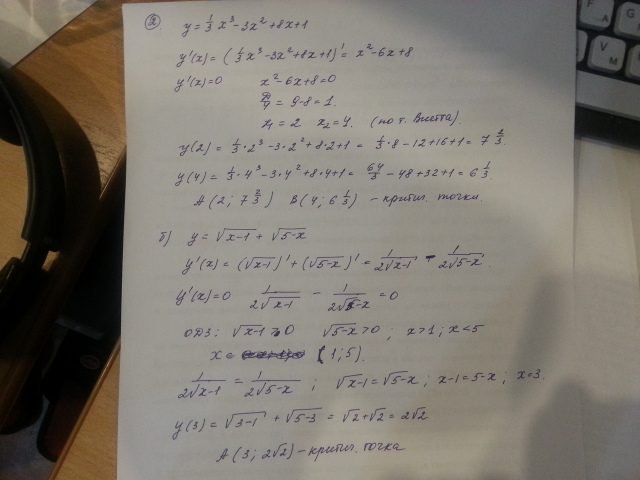 а) y = 1/3 x³ - 3x² + 8x + 1
y'(x) = (1/3 x³ - 3x² + 8x + 1)' = x² - 6x + 8
y'(x) = 0 x² - 6x + 8 = 0
D/4 = 9 - 8 = 1.
x₁ = 2 x₂ = 4. (по т. Виетта).
y(2) = 1/3 · 2³ - 3 · 2² + 8 · 2 + 1 = 1/3 · 8 - 12 + 16 + 1 = 7 2/3.
y(4) = 1/3 · 4³ - 3 · 4² + 8 · 4 + 1 = 64/3 - 48 + 32 + 1 = 6 1/3.
A (2; 7 2/3) B (4; 6 1/3) - критич. точки.
б) y = √(x-1) + √(5-x)
y'(x) = (√(x-1))' + (√(5-x))' = 1/(2√(x-1)) - 1/(2√(5-x)).
y'(x) = 0 1/(2√(x-1)) - 1/(2√(5-x)) = 0
ОДЗ: √(x-1) > 0 √(5-x) > 0 ; x > 1 ; x < 5
x = (1; 5).
1/(2√(x-1)) = 1/(2√(5-x)) ; √(x-1) = √(5-x) ; x-1 = 5-x ; x = 3.
y(3) = √(3-1) + √(5-3) = √2 + √2 = 2√2
A (3; 2√2) - критич. точка
V
M